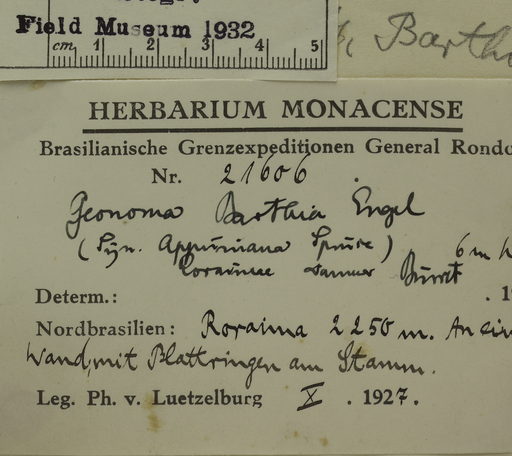 Field Museum 1932
cm 1 2 3 4 5
Barth
HERBARIUM MONACENSE
Brasilianische Grenzexpeditionen General Rondo
Nr. 21606.
Geonoma Barthia Engel
(Syn. Appuniana Spruce)
6 m h
Burret
Determ.: . 1
Nordbrasilien: Roraima 2250 m. An ein
Wand, mit Blattringen am Stamm.
Leg. Ph. v. Luetzelburg X . 1927.